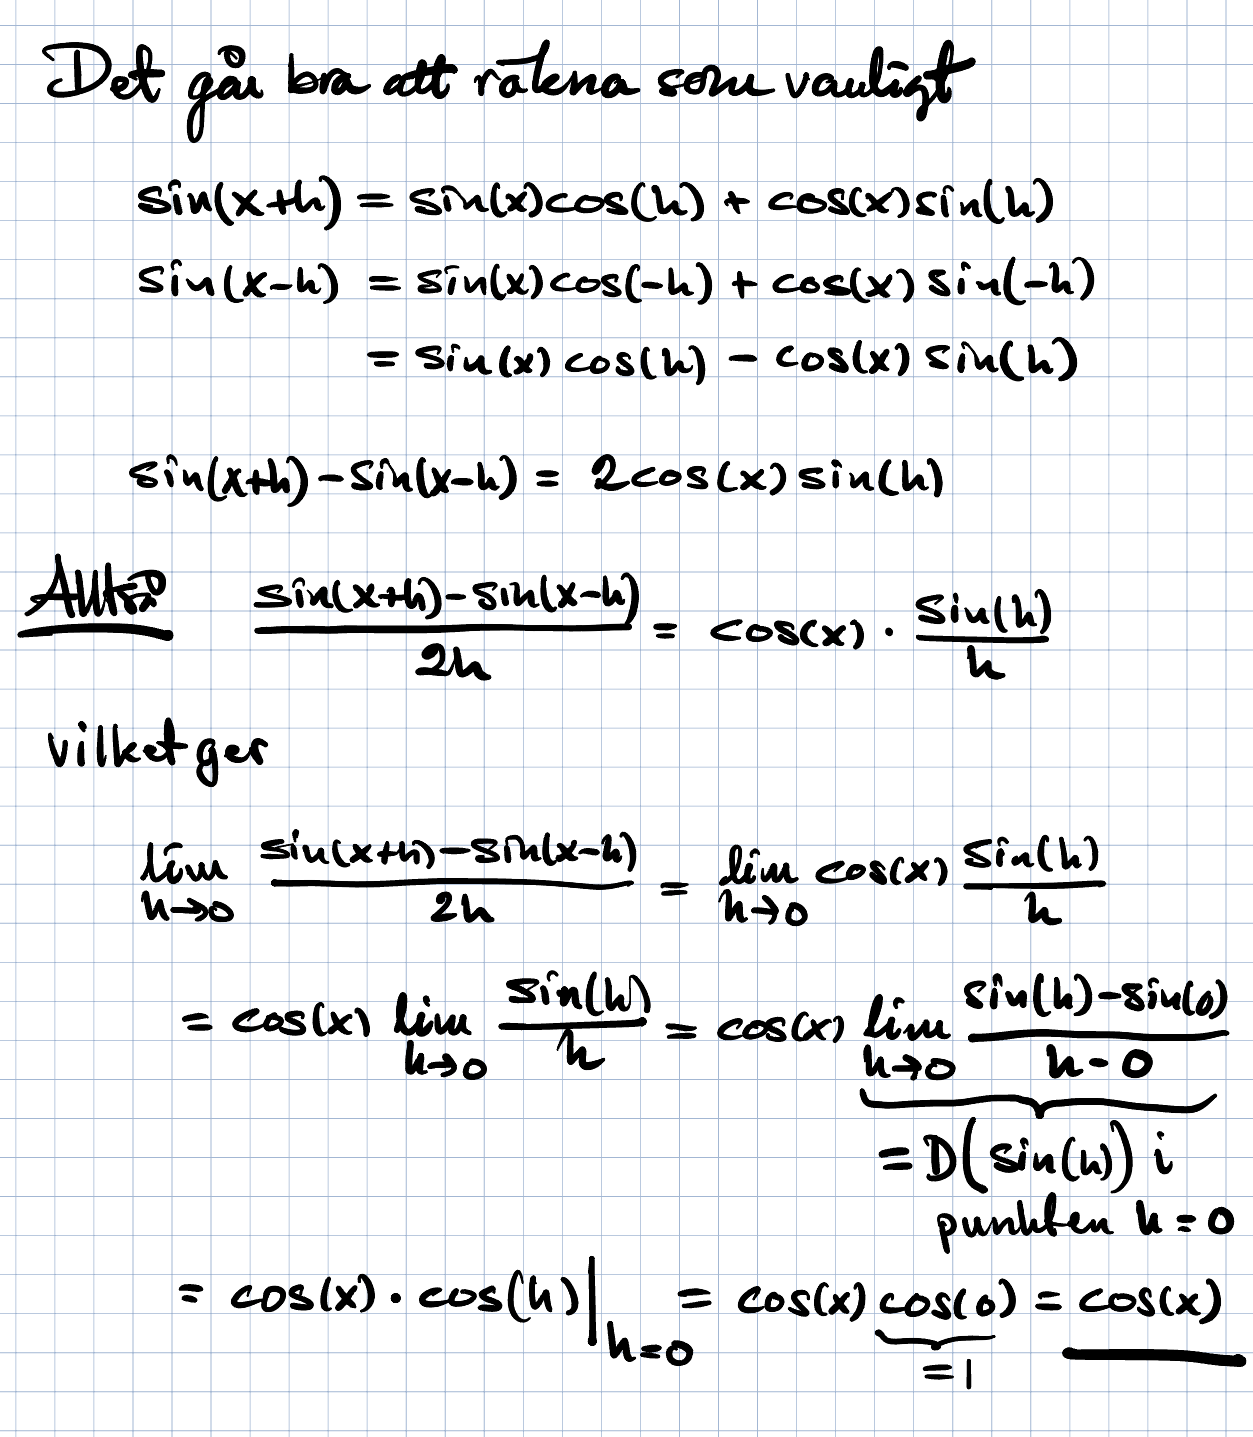 Det går bra att räkna som vanligt
sin(x+h) = sin(x)cos(h) + cos(x)sin(h)
sin(x-h) = sin(x)cos(-h) + cos(x) sin(-h)
= sin(x) cos(h) - cos(x) sin(h)
sin(x+h) - sin(x-h) = 2cos(x) sin(h)
Alltså (sin(x+h) - sin(x-h))/(2h) = cos(x) · sin(h)/h
vilket ger
lim h→0 (sin(x+h) - sin(x-h))/(2h) = lim h→0 cos(x) sin(h)/h
= cos(x) lim h→0 sin(h)/h = cos(x) lim h→0 (sin(h) - sin(0))/(h - 0)
= D(sin(h)) i
punkten h = 0
= cos(x) · cos(h)| h=0 = cos(x) cos(0) = cos(x)
= 1